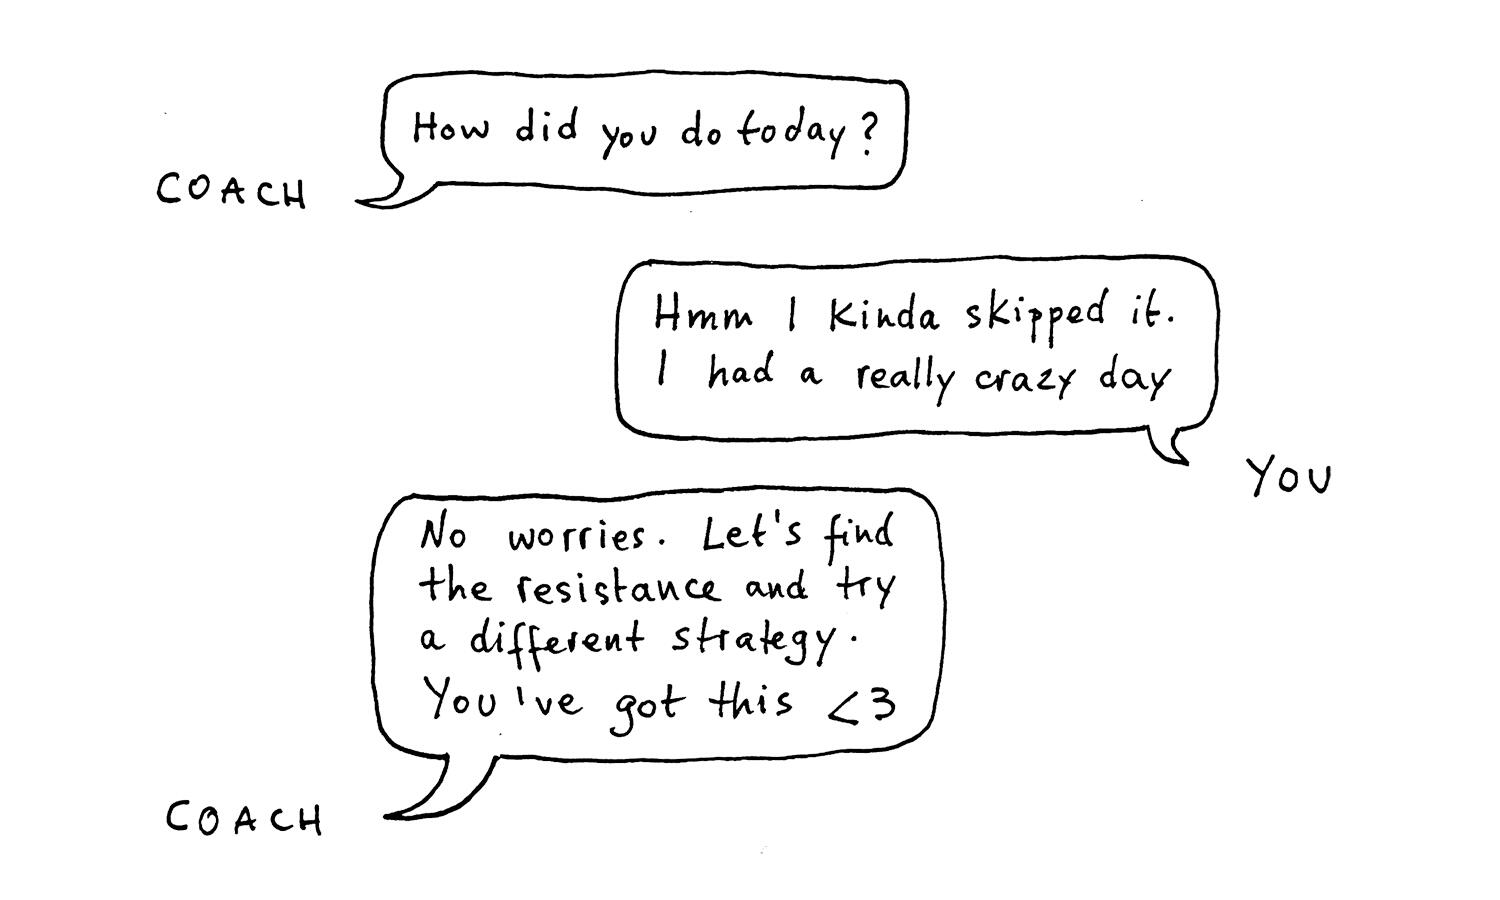 How did you do today?
COACH
Hmm I kinda skipped it.
I had a really crazy day
YOU
No worries. Let's find
the resistance and try
a different strategy.
You've got this <3
COACH